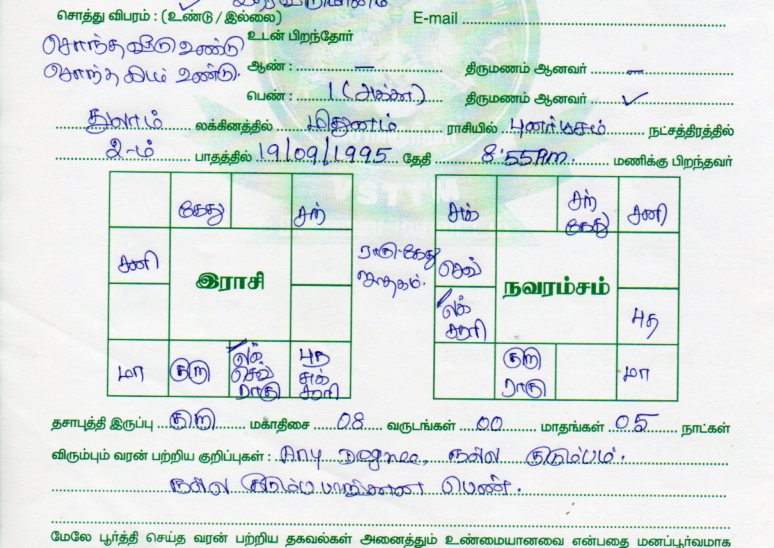 சொத்து விபரம் : (உண்டு / இல்லை) E-mail
சொந்த வீடு உண்டு உடன் பிறந்தோர்
சொந்த உண்டு. ஆண் : — திருமணம் ஆனவர் —
பெண் : 1 (அக்கா) திருமணம் ஆனவர் ✓
துலாம் லக்கினத்தில் மிதுனம் ராசியில் புனர்பூசம் நட்சத்திரத்தில்
2-ம் பாதத்தில் 19/09/1995 தேதி 8.55Pm. மணிக்கு பிறந்தவர்
கேது சந் சந் கேது சனி
சனி இராசி ராகு-கேது ஜாதகம். செவ் நவரம்சம்
லக் சூரி புத
மா குரு லக் செவ் ராகு புத சுக் சூரி குரு ராகு மா
தசாபுத்தி இருப்பு குரு மகாதிசை 08 வருடங்கள் 00 மாதங்கள் 05 நாட்கள்
விரும்பும் வரன் பற்றிய குறிப்புகள் : Any Degree, நல்ல குடும்பம்.
நல்ல குடும்ப பாங்கான பெண்.
மேலே பூர்த்தி செய்த வரன் பற்றிய தகவல்கள் அனைத்தும் உண்மையானவை என்பதை மனப்பூர்வமாக